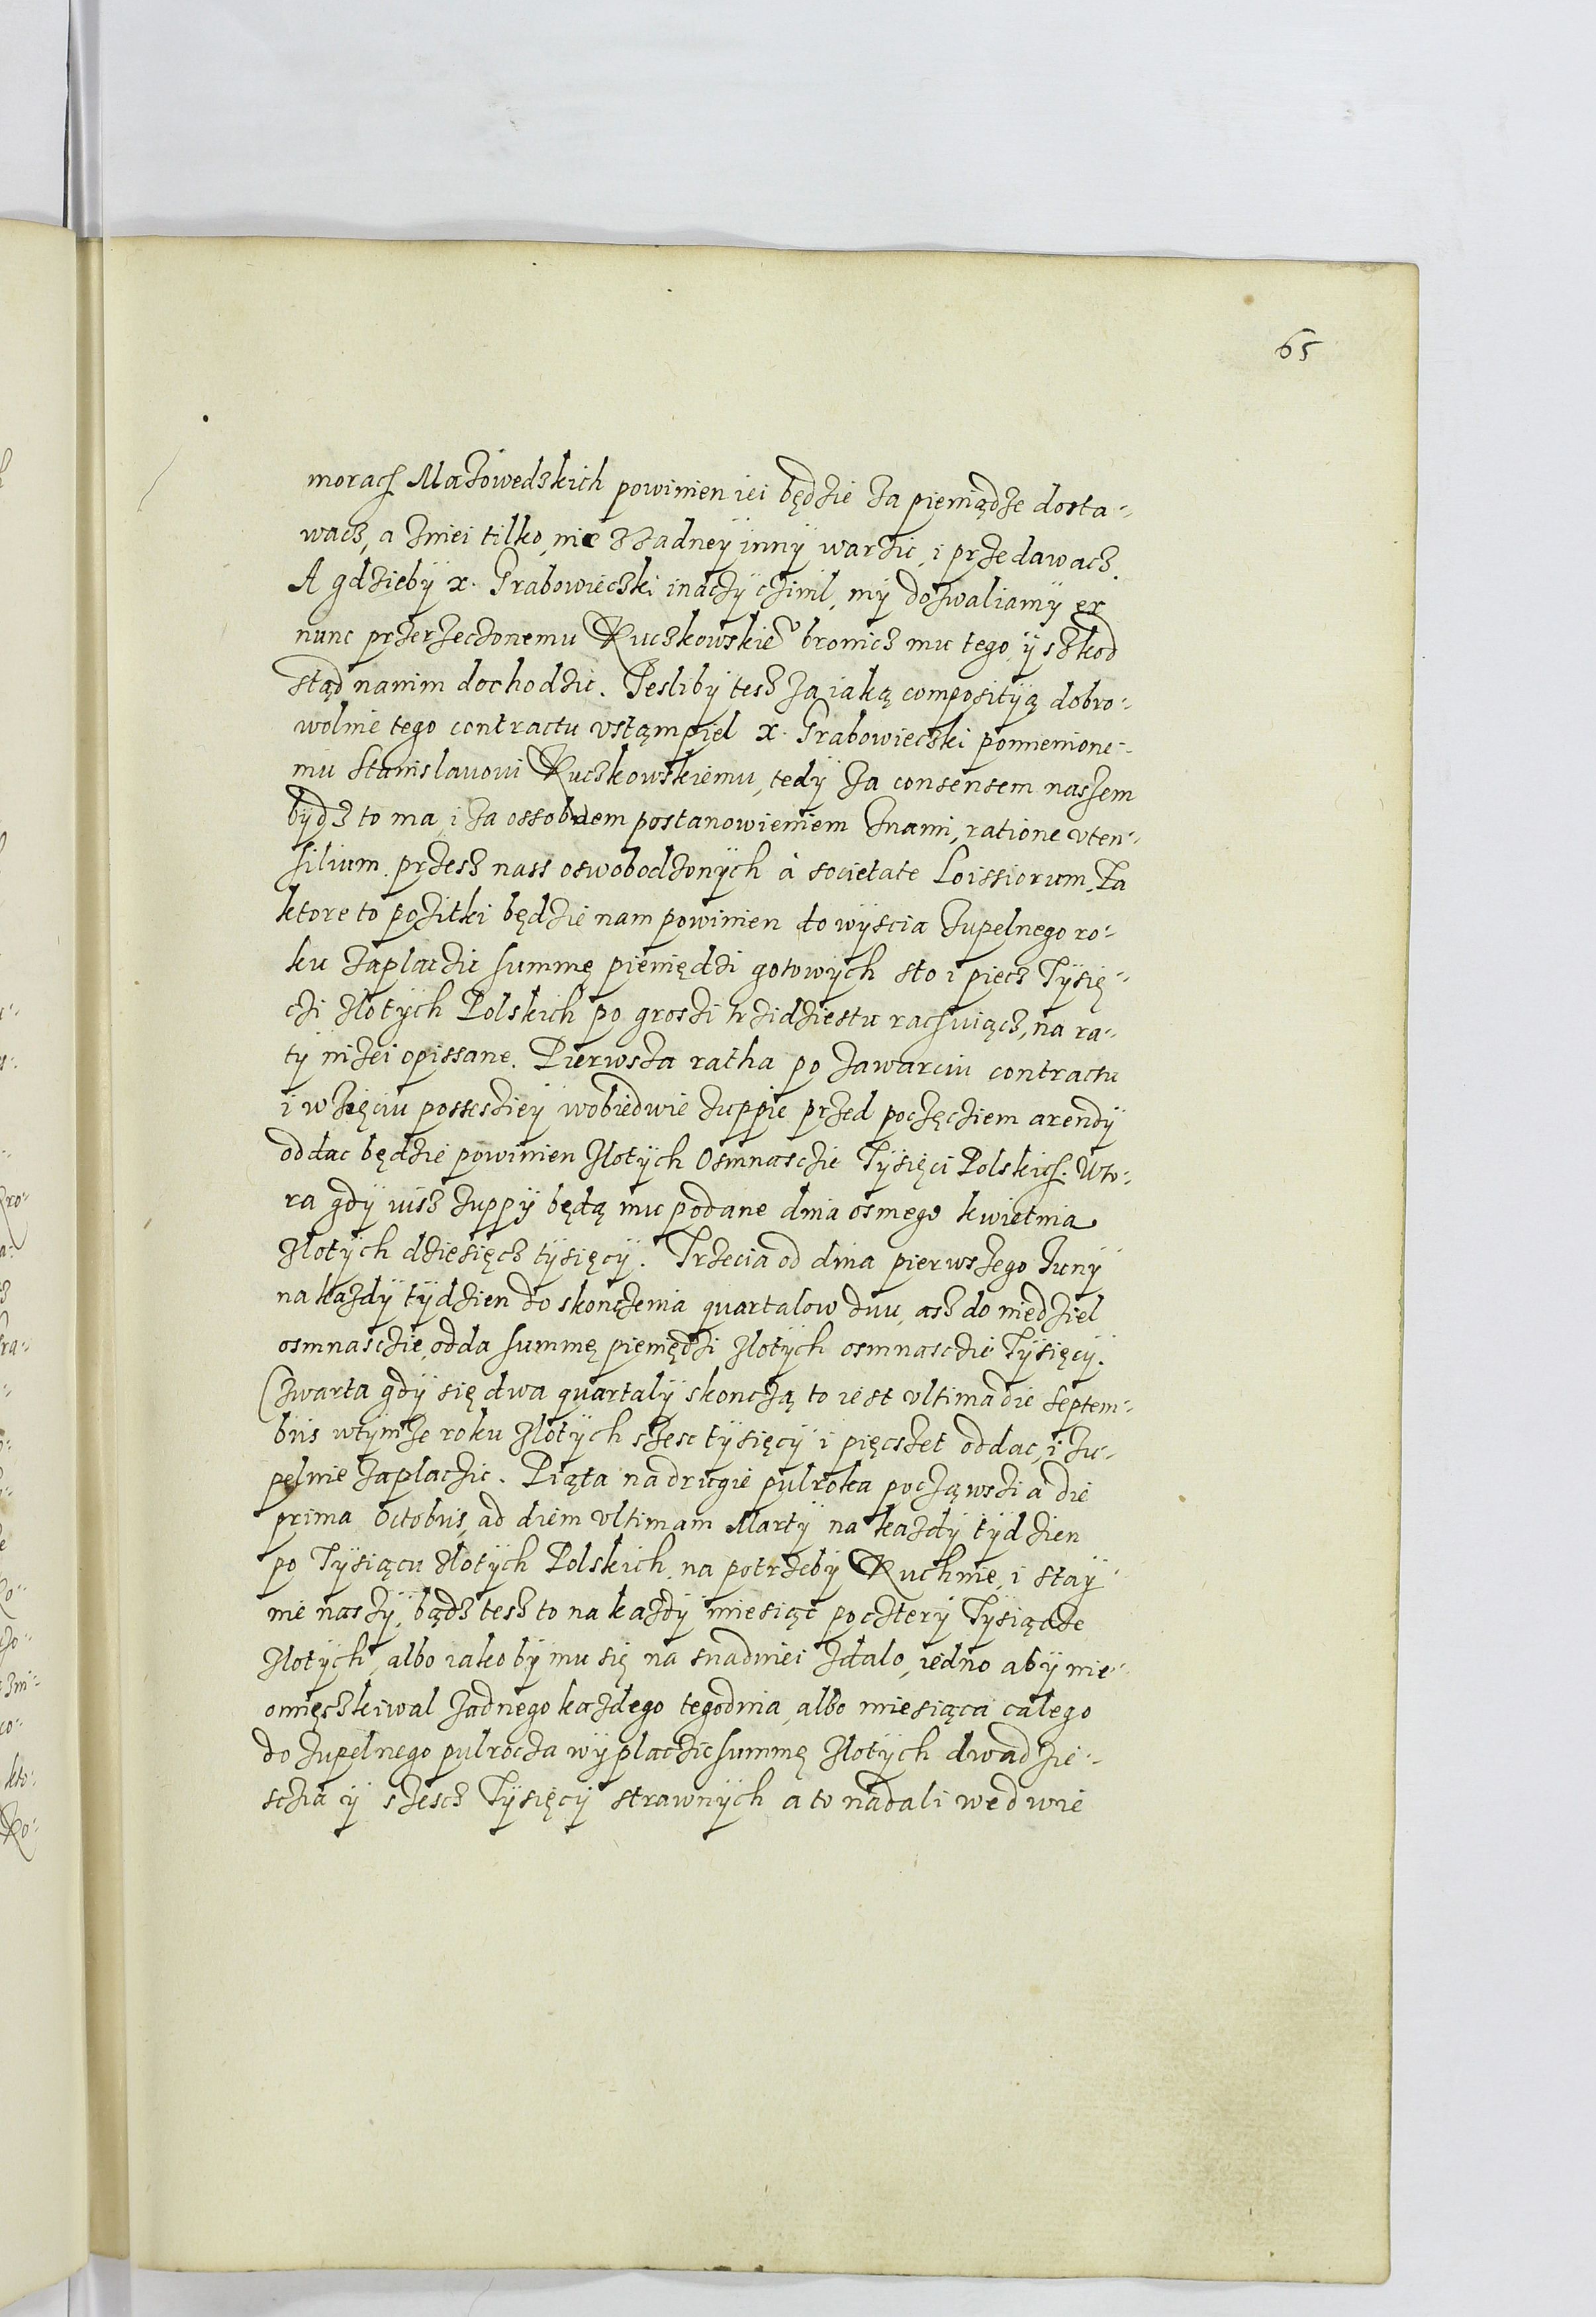 65
morach Mazowedskich powinien iei będzie za pieniądze dosta-
wacz, a zniei tilko, nie zzadney inny warzic, i przedawacz.
A gdzieby x. Grabowieczki inaczy czinil, my dozwaliamy ex
nunc przerzeczonemu Kuczkowskieo bronicz mu tego, y szkod
stąd nanim dochodzic. Jesliby tesz za iaką compositią dobro-
wolnie tego contractu vstąmpiel x. Grabowieczki pomienione-
mu Stanislauoui Kuczkowskiemu, tedy za consensem naszem
bydz to ma, i za ossobnem postanowieniem znami, ratione vten-
silium. przesz nass oswobodzonych à societate Loissiorum. Za
ktore to pozitki będzie nam powinien do wyscia zupelnego ro-
ku zaplaczic summę pieniędzi gotowych sto i piecz Tysię-
czi zlotych Polskich po groszi trzidziestu rachuiącz, na ra-
ty nizei opissane. Pierwsza ratha po zawarciu contractu
i wzięciu possessiey wobiedwie zuppie przed poczęcziem arendy
oddac będzie powinien zlotych Osmnasczie Tysięci Polskich. Wto-
ra gdy iusz zuppy będą mu podane dnia osmego kwietnia
zlotych dziesięcz tysięcy. Trzecia od dnia pierwszego Juny
na kazdy tydzien do skonczenia quartalow duu, asz do niedziel
osmnasczie, odda summę pieniędzi zlotych osmnasczie Tysięcy.
Czwarta gdy się dwa quartaly skonczą to iest vltima die Septem-
bris wtymze roku zlotych szesc tysięcy i pięcszet oddac, i zu-
pelnie zaplaczic. Piąta na drugie pulroka począwszi a die
prima Octobris, ad diem vltimam Marty na kazdy tydzien
po Tysiącu zlotych Polskich, na potrzeby Kuchnie, i stay
nie naszy, bądz tesz to na kazdy miesiąc po cztery Tysiącze
zlotych, albo iakoby mu się na snadniei zdalo, iedno aby nie
omięszkiwal zadnego kazdego tegodnia, albo miesiąca calego
do zupelnego pulrocza wyplaczic summę zlotych dwadzie-
sczia y szescz Tysięcy strawnych a to nadali we dwie